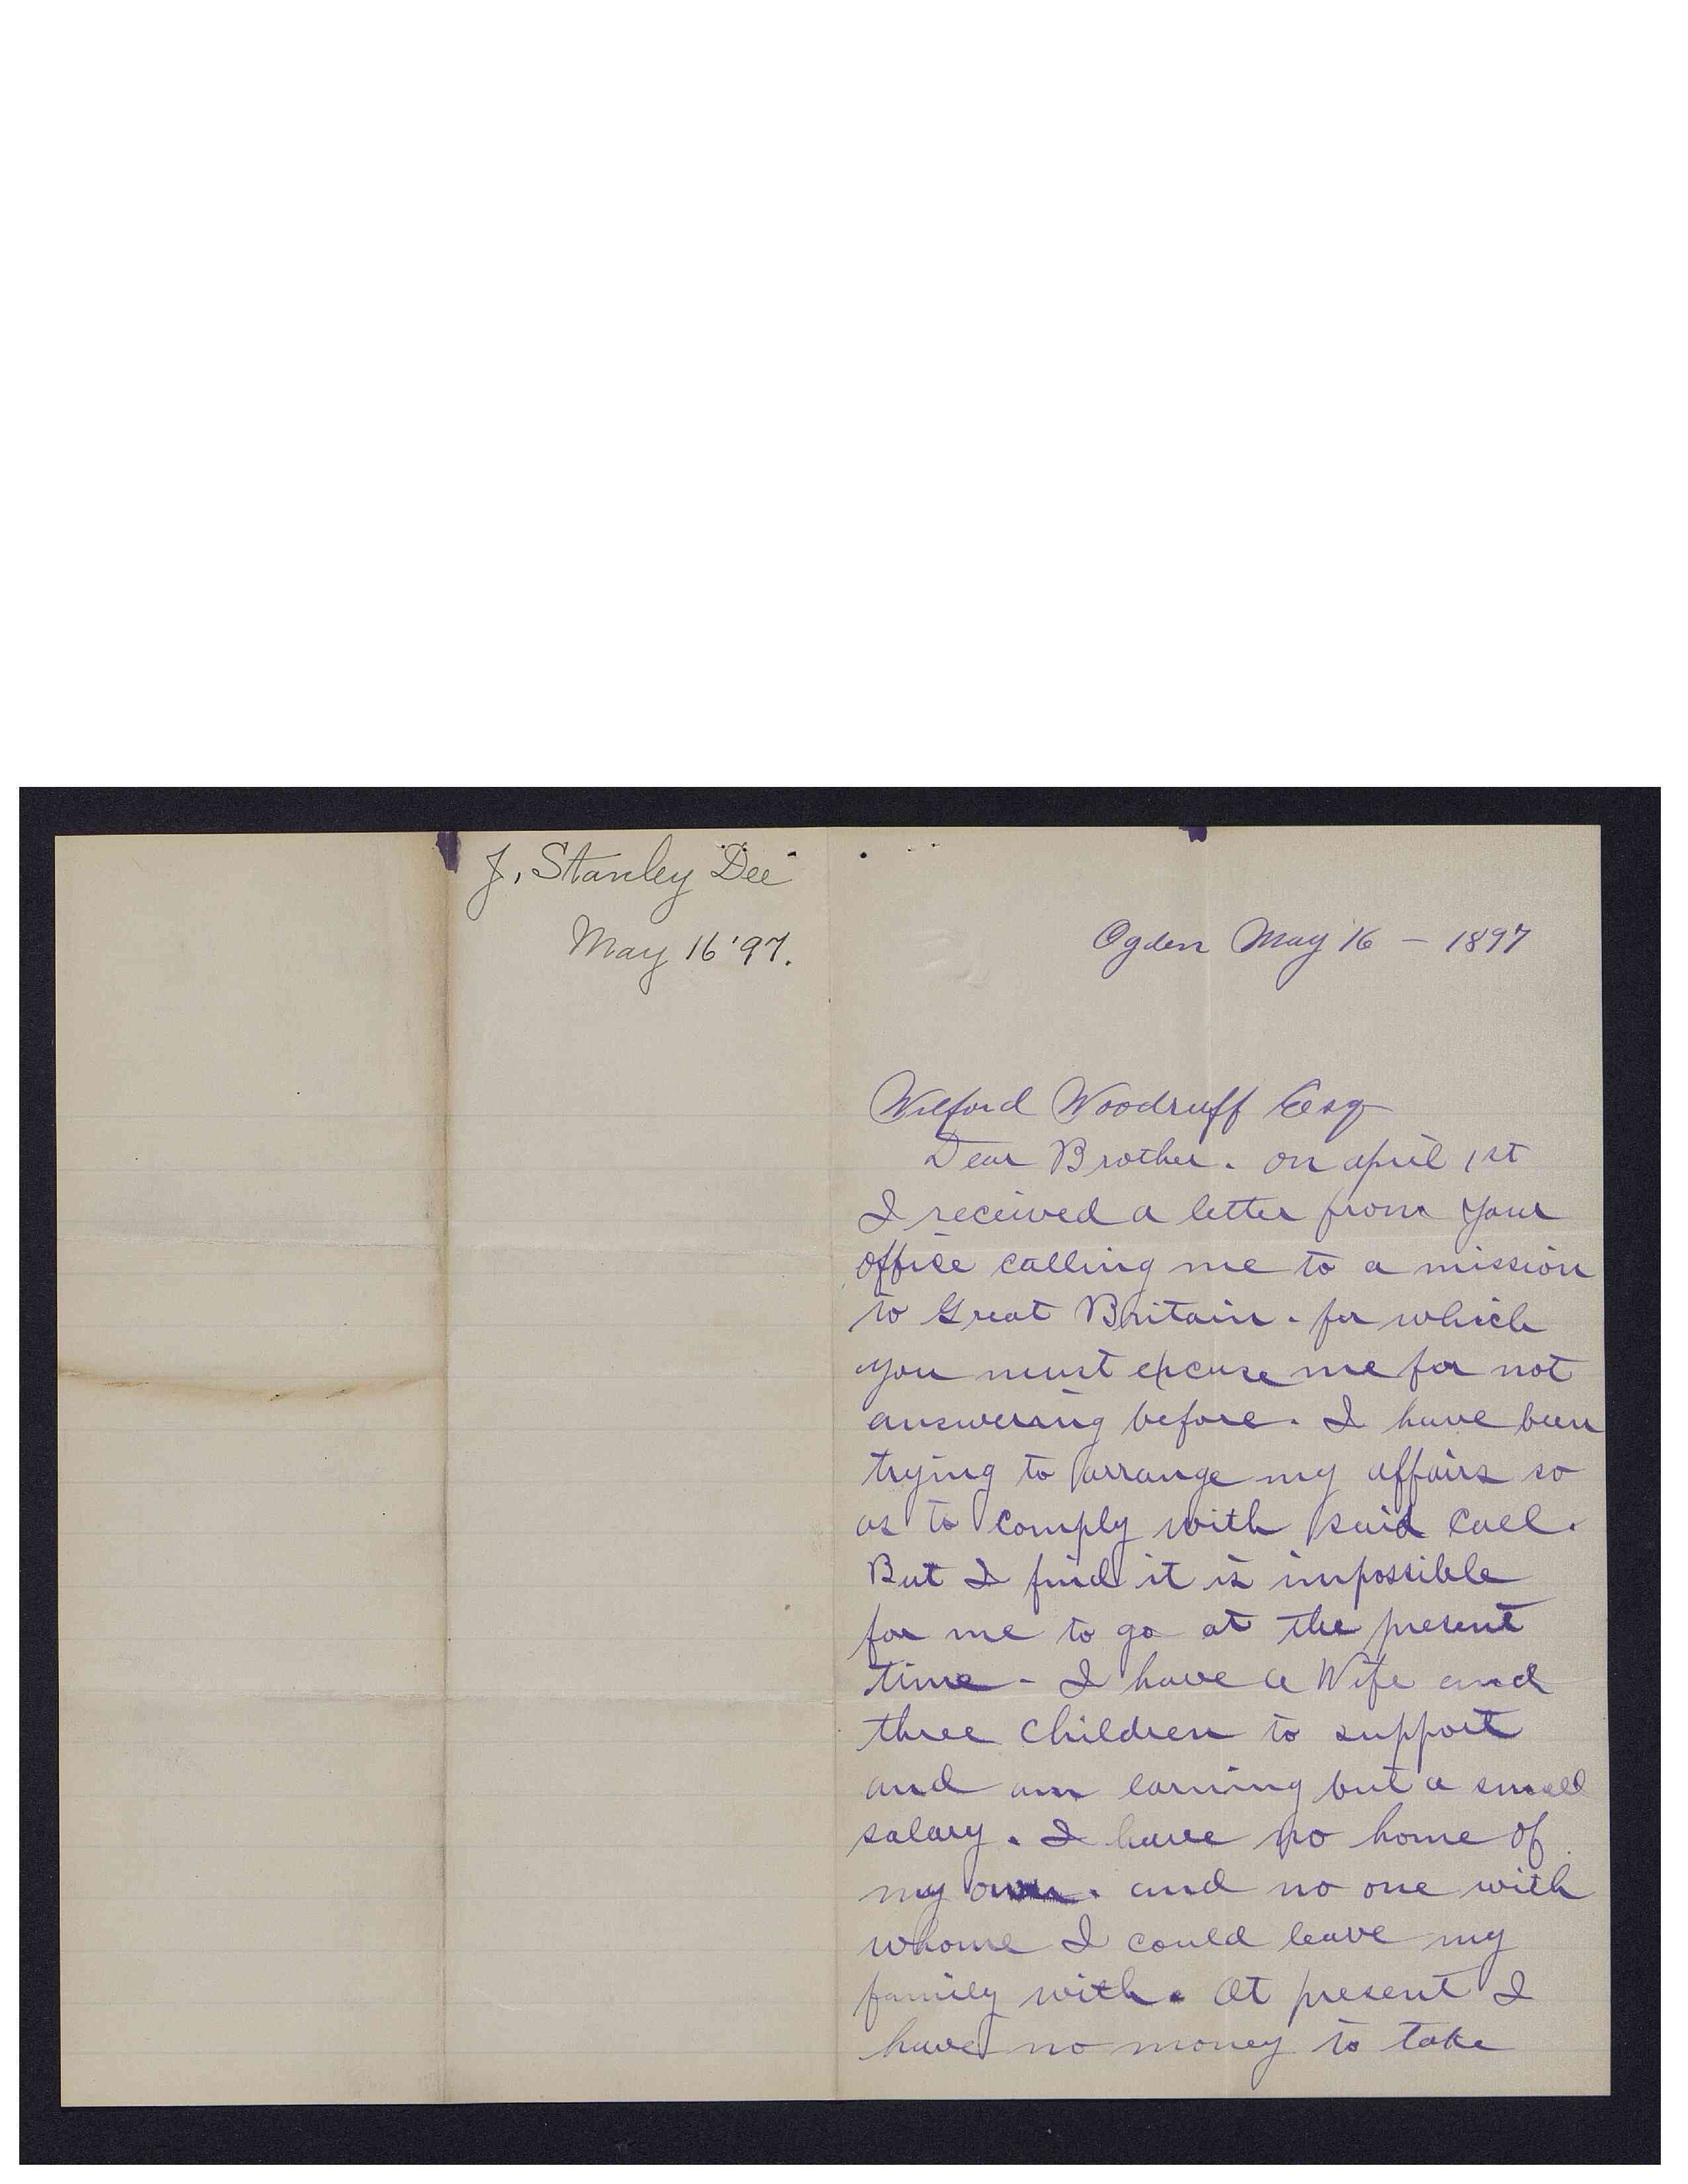 J. Stanley Dee
May 16 '97.
Ogden May 16 – 1897
Wilford Woodruff Esq
Dear Brother. on april 1st
I received a letter from your
office calling me to a mission
to Great Britain. for which
you must excuse me for not
answering before. I have been
trying to arrange my affairs so
as to comply with said call.
But I find it is impossible
for me to go at the present
time - I have a Wife and
three children to support
and am earning but a small
salary. I have no home of
my own. and no one with
whome I could leave my
family with. At present I
have no money to take